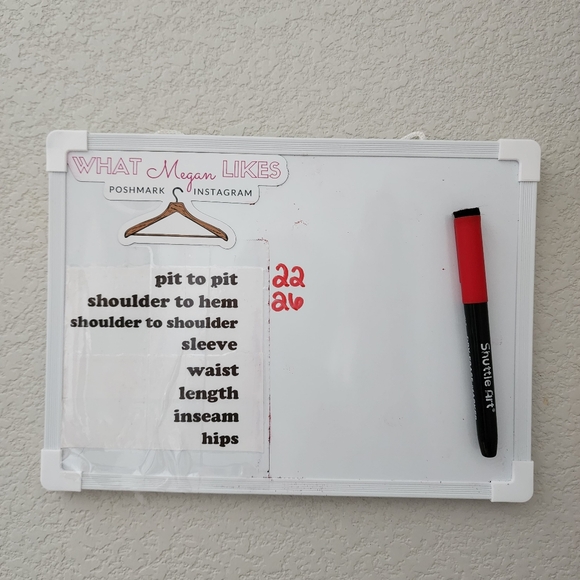 WHAT Megan LIKES
POSHMARK INSTAGRAM
pit to pit 22
shoulder to hem 26
shoulder to shoulder
sleeve
waist
length
inseam
hips
Shuttle Art